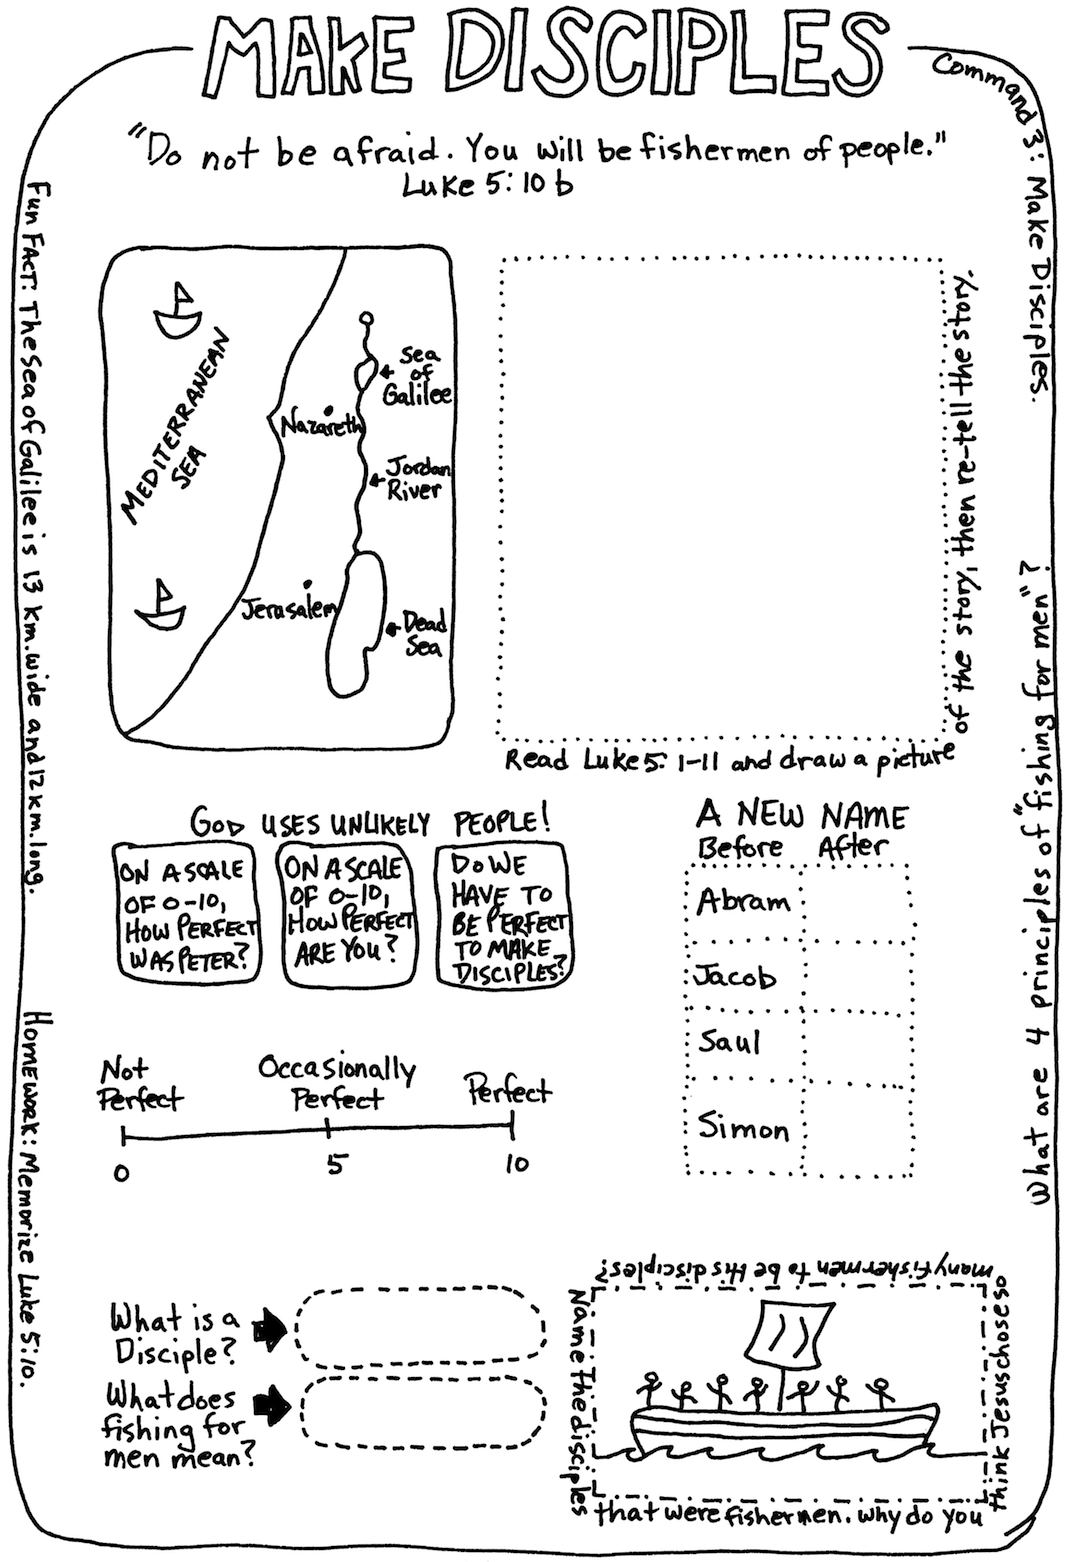 MAKE DISCIPLES
Command 3: Make Disciples.
"Do not be afraid. You will be fishermen of people."
Luke 5:10 b
Fun FACT: The Sea of Galilee is 13 km. wide and 12 km. long.
MEDITERRANEAN
SEA
Sea
of
Galilee
Nazareth
Jordan
River
Jerusalem
Dead
Sea
Read Luke 5: 1-11 and draw a picture
of the story, then re-tell the story.
What are 4 principles of "fishing for men"?
GOD USES UNLIKELY PEOPLE!
ON A SCALE
OF 0-10,
HOW PERFECT
WAS PETER?
ON A SCALE
OF 0-10,
HOW PERFECT
ARE YOU?
DO WE
HAVE TO
BE PERFECT
TO MAKE
DISCIPLES?
A NEW NAME
Before After
Abram
Jacob
Saul
Simon
Not
Perfect
Occasionally
Perfect
Perfect
0
5
10
HOMEWORK: Memorize Luke 5:10.
What is a
Disciple?
What does
fishing for
men mean?
Name the disciples
that were fishermen. Why do you
think Jesus chose so
many fishermen to be His disciples?